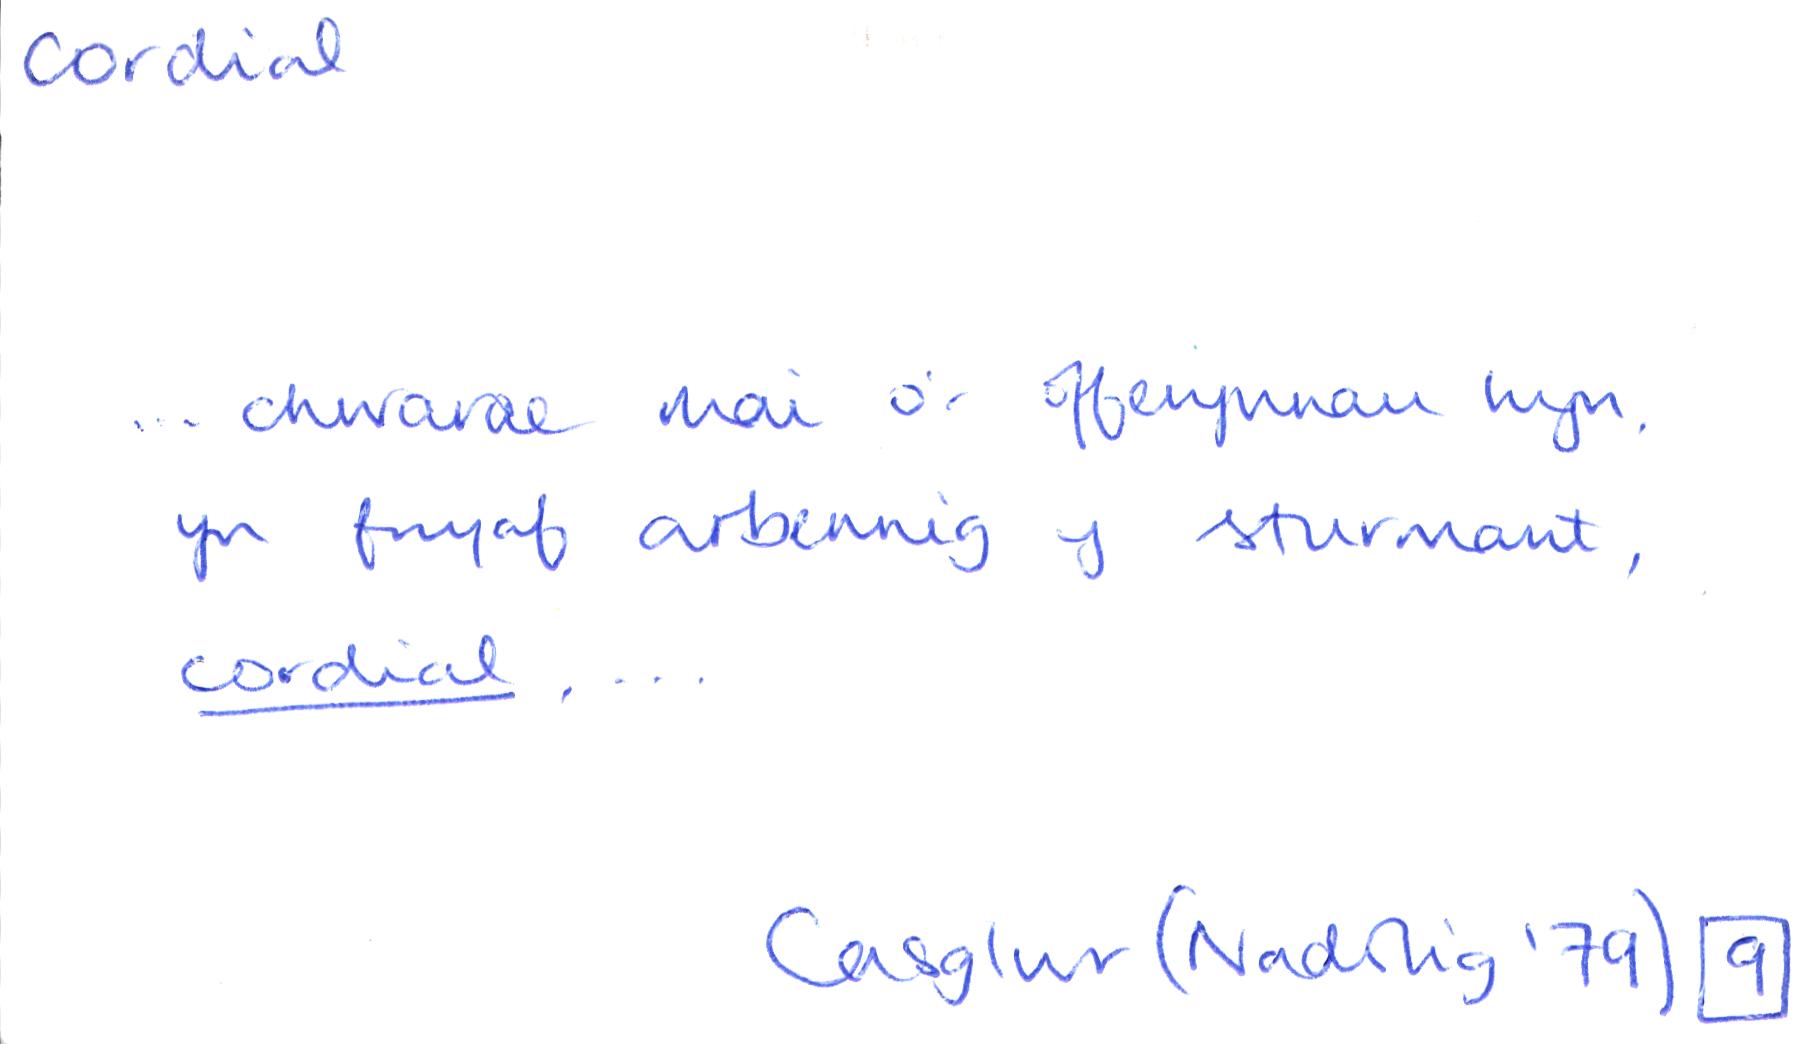 cordial
... chwarae rhai o'r offerynnau hyn,
yn fwyaf arbennig y sturmant,
cordial, ...
Casglwr (Nadolig '79) 9